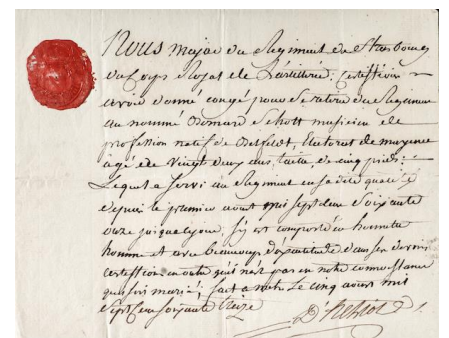 Nous major du Regiment de Strasbourg
du Corps Royal de L'artillerie; Certiffions
avoir donné congé pour se retirer du Regiment
au nommé Schott musicien de
profession natif de Electorat de mayence
agé de Vingt deux ans, taille, de cinq pieds;
Lequel a servi au Regiment en sa dite qualité
depuis le premier aout mil sept Cent Soixante
onze jusqu'a ce jour, s'y est comporté en honnette
homme et avec beaucoup d'exactitude dans son devoir
Certiffions en outre qu'il n'est pas en notre connoissance
qu'il soit marié; fait a Le cinq aoust mil
Sept Cent Soixante treize